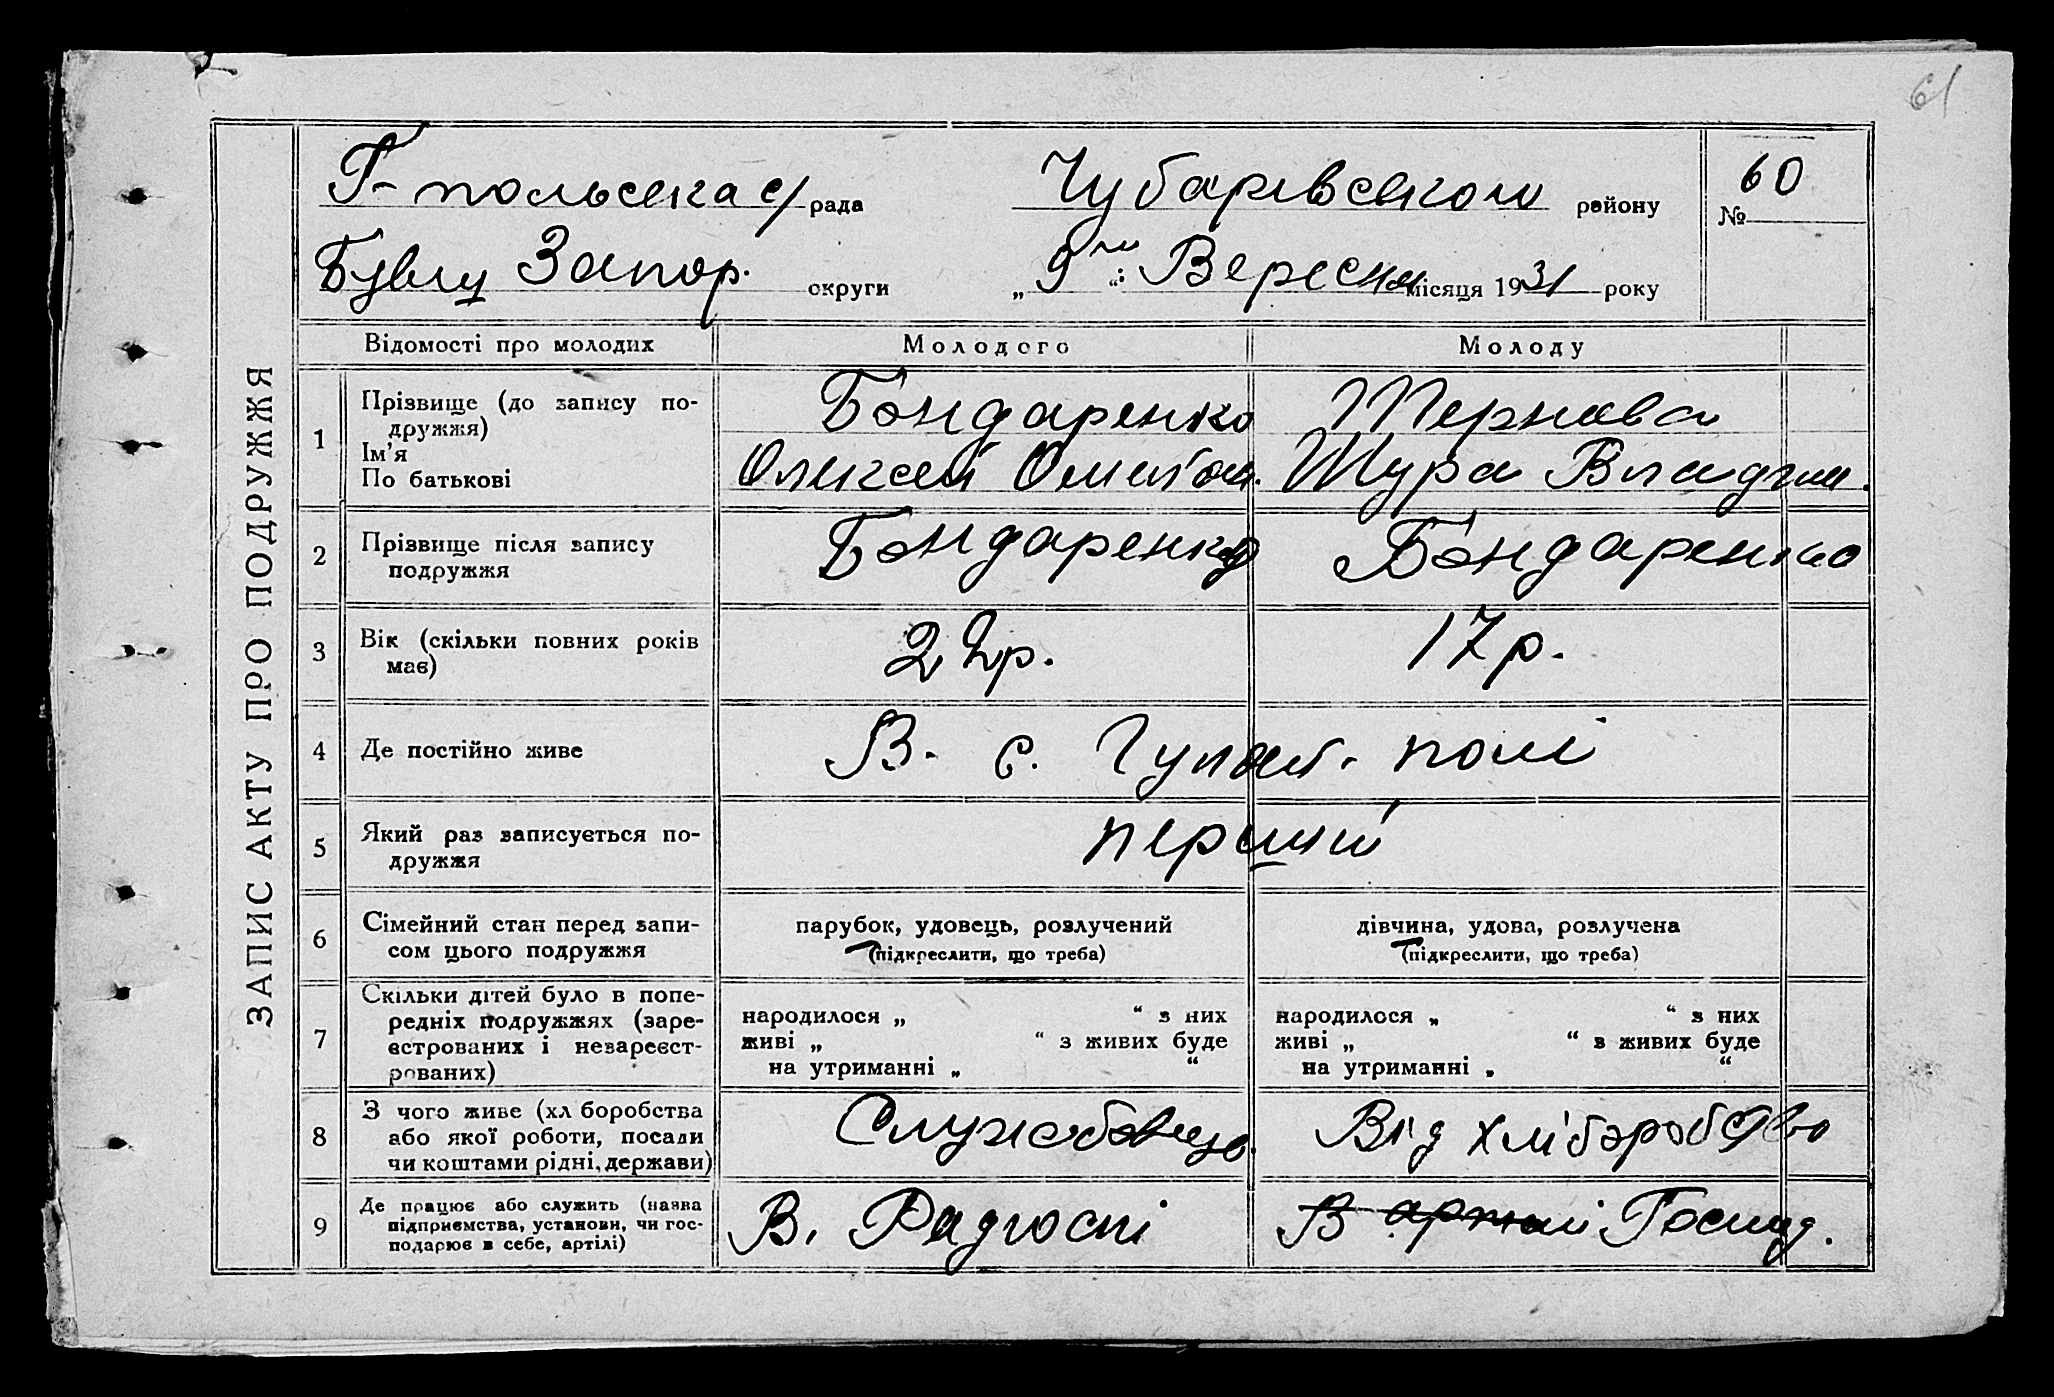 61
Г-польська с/рада Чубарівського району № 60
Бувш Запор. округи „9го“ Вересня місяця 1931 року
ЗАПИС АКТУ ПРО ПОДРУЖЖЯ
Відомості про молодих Молодого Молоду
1 Прізвище (до запису подружжя) Бондаренко Тернова
Ім'я
По батькові Олексей Омел'ян. Шура Владим.
2 Прізвище після запису Бондаренко Бондаренко
подружжя
3 Вік (скільки повних років 22р. 17р.
має)
4 Де постійно живе В. с. Гуляй. полі
5 Який раз записується по- перший
дружжя
6 Сімейний стан перед запи- парубок, удовець, розлучений дівчина, удова, розлучена
сом цього подружжя (підкреслити, що треба) (підкреслити, що треба)
7 Скільки дітей було в попе-
редніх подружжях (заре- народилося „ “ з них народилося „ “ з них
єстрованих і незареєст- живі „ “ з живих буде живі „ “ з живих буде
рованих) на утриманні „ “ на утриманні „ “
8 З чого живе (хліборобства
або якої роботи, посади Службовець. Від хліборобства
чи коштами рідні, держави)
9 Де працює або служить (назва
підприємства, установи, чи гос- В. Радгоспі В артілі Господ.
подарює в себе, артілі)